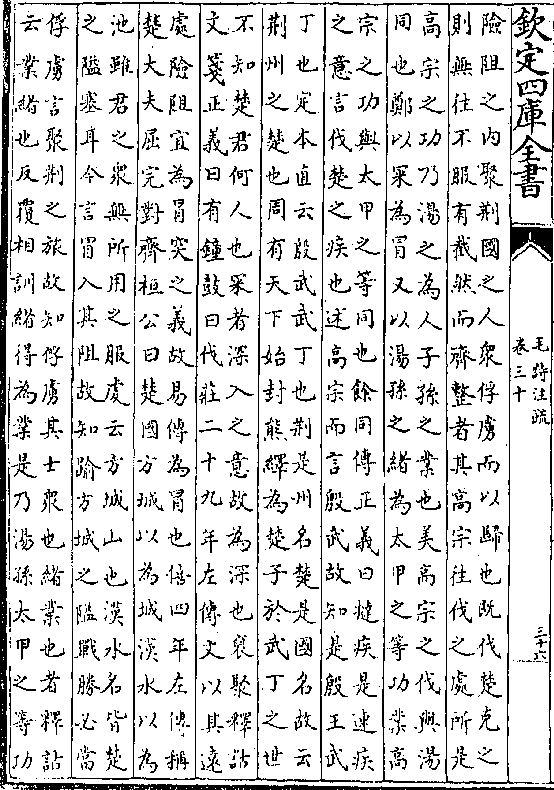 欽定四庫全書
毛詩注疏
卷三十
三十六
險阻之內聚荆國之人衆俘虜而以歸也既伐楚克之
則無往不服有截然而齊整者其高宗往伐之處所是
高宗之功乃湯之為人子孫之業也美高宗之伐與湯
同也鄭以罙為冒又以湯孫之緒為太甲之等功業高
宗之功與太甲之等同也餘同傳正義曰撻疾是速疾
之意言伐楚之疾也述高宗而言殷武故知是殷王武
丁也定本直云殷武武丁也荆是州名楚是國名故云
荆州之楚也周有天下始封熊繹為楚子於武丁之世
不知楚君何人也罙者深入之意故為深也裒聚釋詁
文箋正義曰有鐘鼓曰伐莊二十九年左傳文以其遠
處險阻宜為冒突之義故易傳為冒也僖四年左傳稱
楚大夫屈完對齊桓公曰楚國方城以為城漢水以為
池雖君之衆無所用之服虔云方城山也漢水名皆楚
之隘塞耳今言冒入其阻故知踰方城之隘戰勝必當
俘虜言聚荆之旅故知俘虜其士衆也緒業也者釋詁
云業緒也反覆相訓緒得為業是乃湯孫太甲之等功